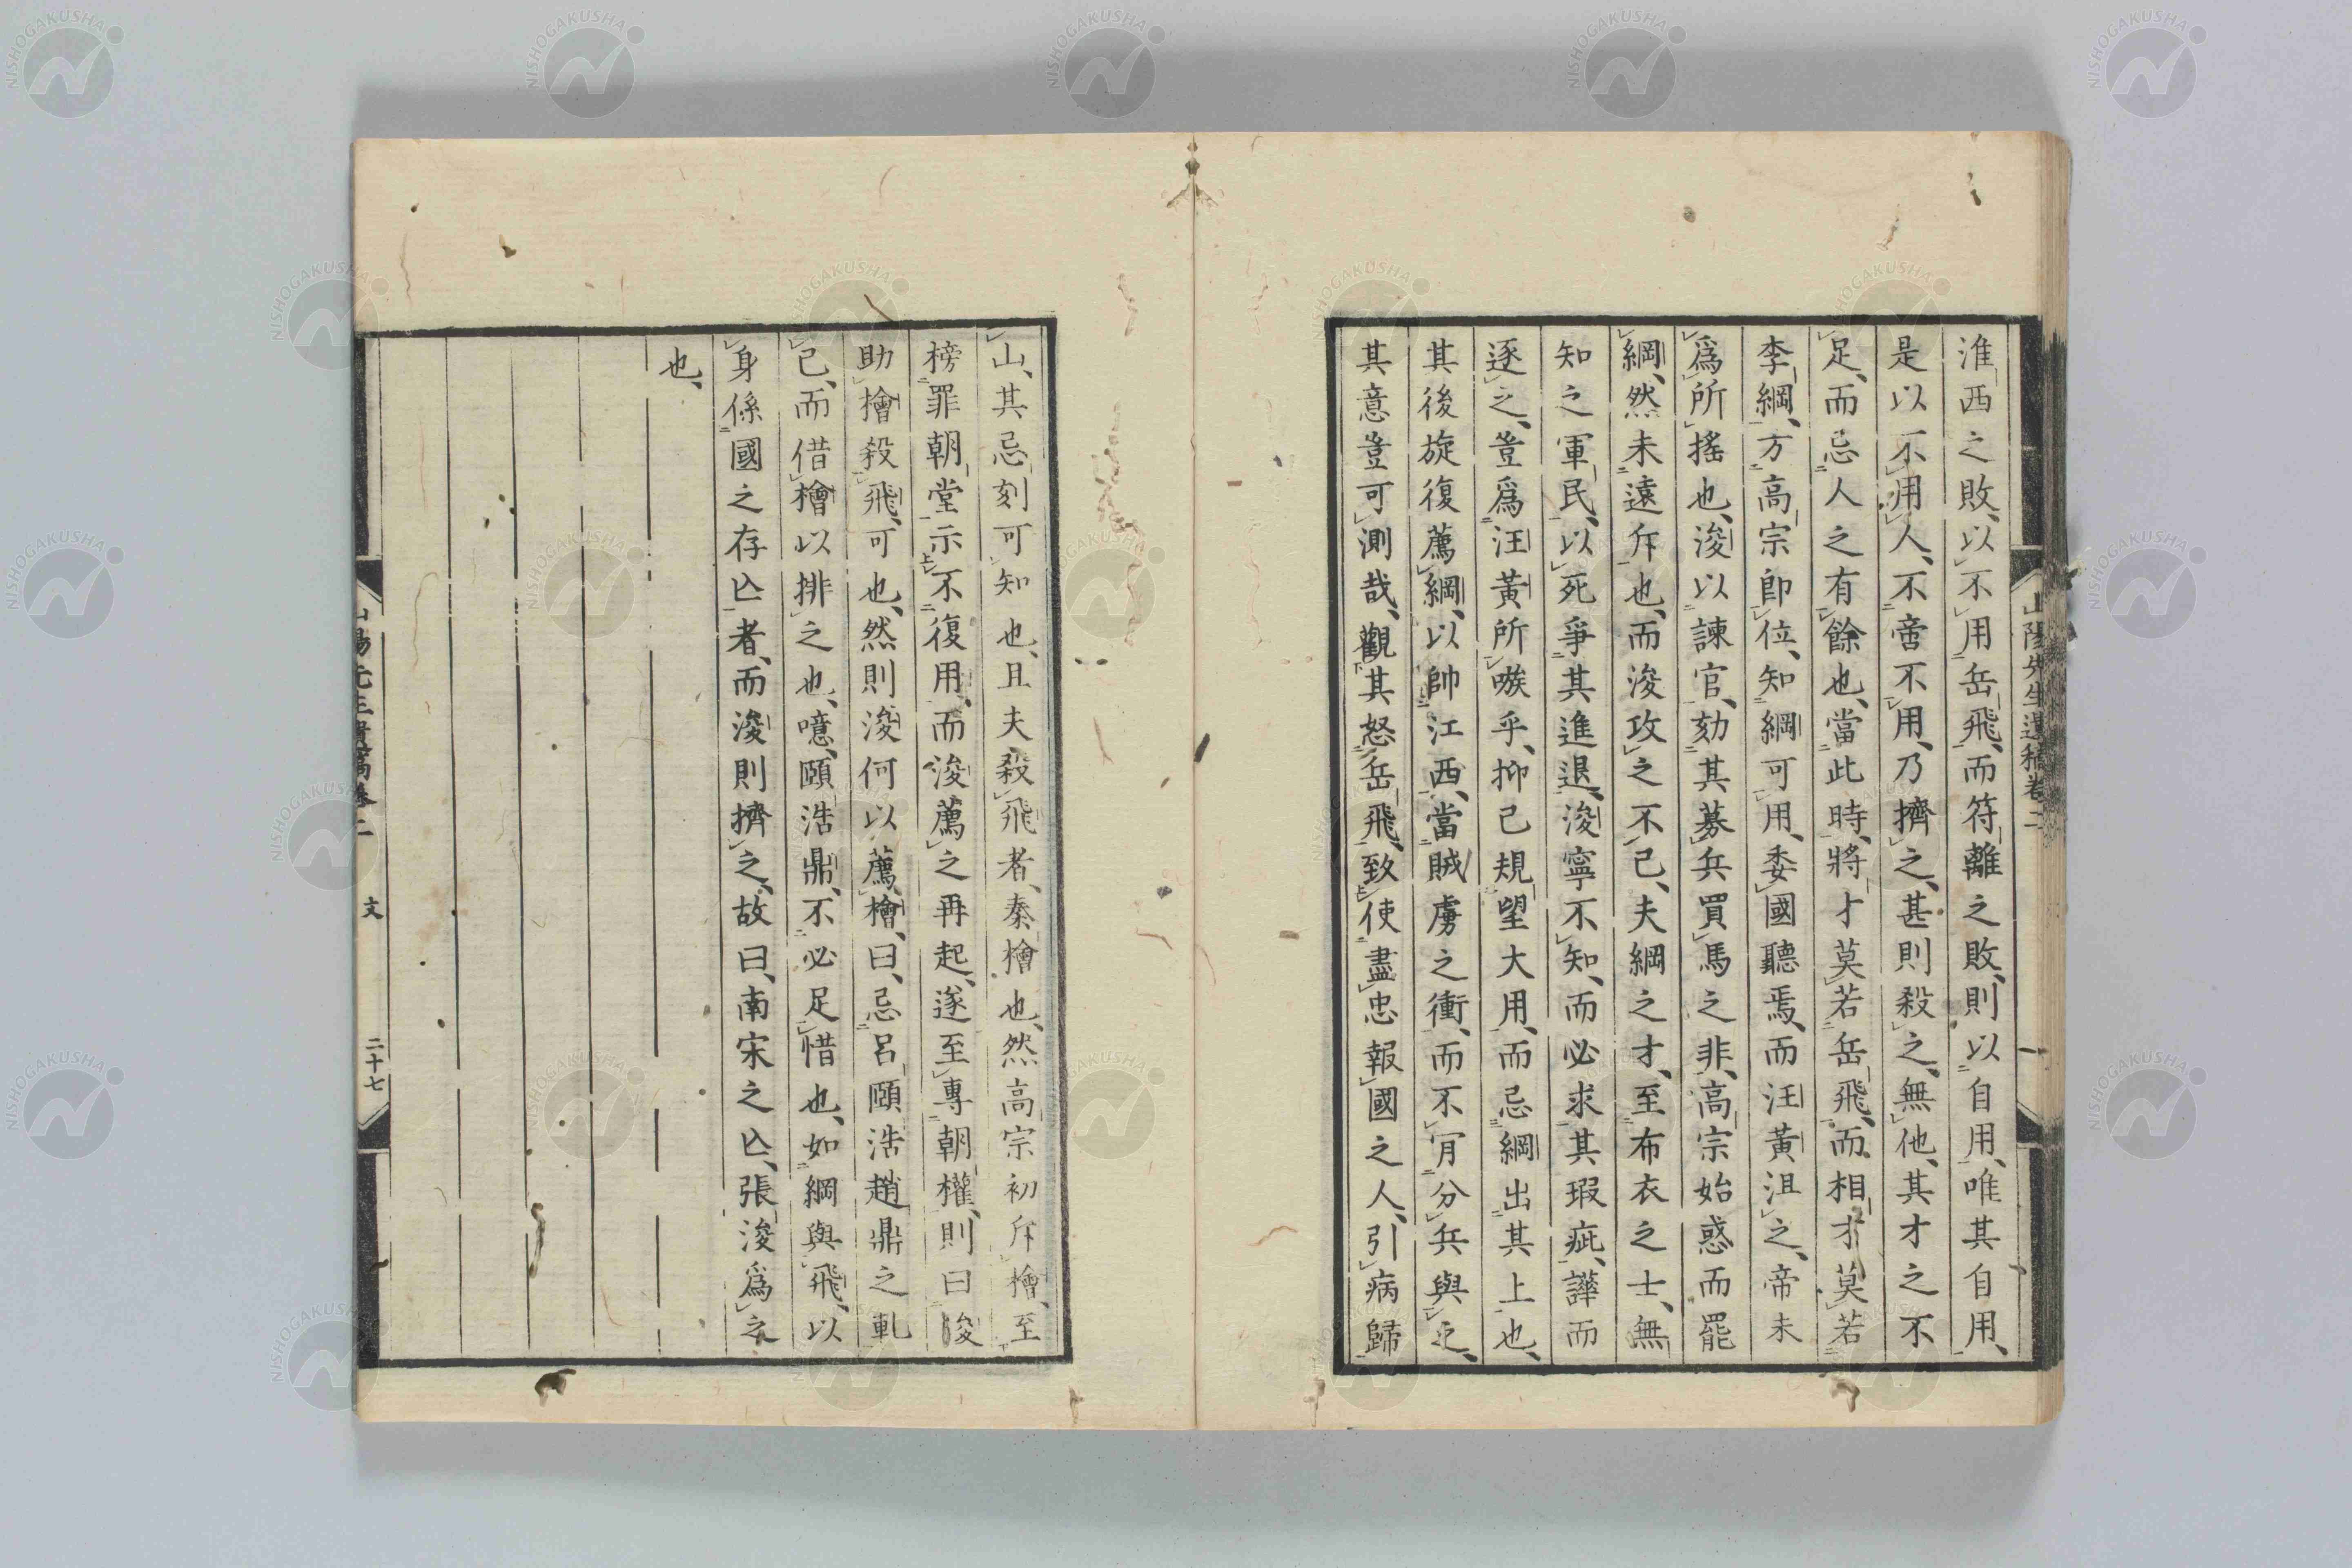 淮西之敗、以不用岳飛、而符離之敗、則以自用、唯其自用、
是以不用人、不啻不用、乃擠之、甚則殺之、無他、其才之不
足、而忌人之有餘也、當此時、將才莫若岳飛、而相才莫若
李綱、方高宗卽位、知綱可用、委國聽焉、而汪黃沮之、帝未
爲所搖也、浚以諫官、劾其募兵買馬之非、高宗始惑而罷
綱、然未遠斥也、而浚攻之不已、夫綱之才、至布衣之士、無
知之軍民、以死爭其進退、浚寧不知、而必求其瑕疵、譁而
逐之、豈爲汪黃所嗾乎、抑己規望大用、而忌綱出其上也、
其後旋復薦綱、以帥江西、當賊虜之衝、而不肎分兵與之、
其意豈可測哉、觀其怒岳飛、致使盡忠報國之人、引病歸
山陽先生遺稿卷二
山、其忌刻可知也、且夫殺飛者、秦檜也、然高宗初斥檜、至
榜罪朝堂示不復用、而浚薦之再起、遂至專朝權、則曰浚
助檜殺飛、可也、然則浚何以薦檜、曰、忌呂頤浩趙鼎之軋
已、而借檜以排之也、噫、頤浩鼎、不必足惜也、如綱與飛、以
身係國之存亾者、而浚則擠之、故曰、南宋之亾、張浚爲之
也、
山陽先生遺稿卷二 文 二十七
NISHOGAKUSHA